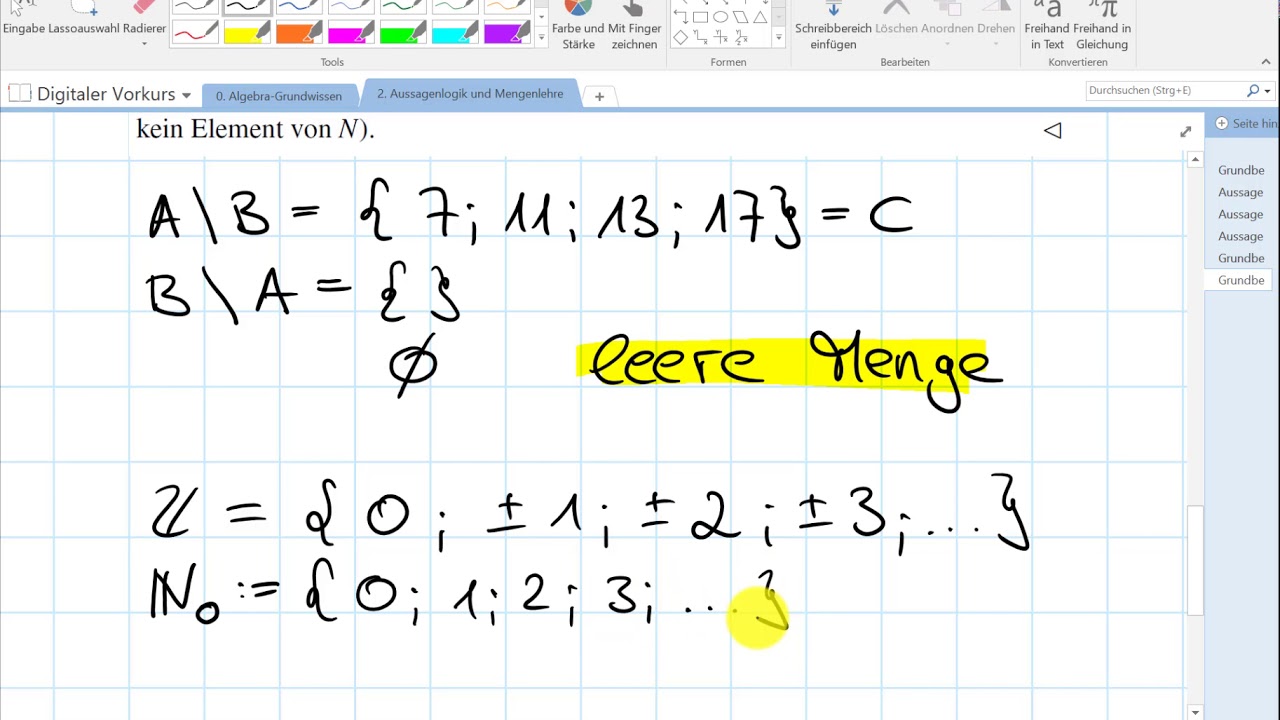 Eingabe Lassoauswahl Radierer
Farbe und Stärke
Mit Finger zeichnen
Schreibbereich einfügen
Löschen Anordnen Drehen
Freihand in Text
Freihand in Gleichung
Tools
Formen
Bearbeiten
Konvertieren
Digitaler Vorkurs
0. Algebra-Grundwissen
2. Aussagenlogik und Mengenlehre
Durchsuchen (Strg+E)
Seite hin
kein Element von N).
Grundbe
Aussage
Aussage
Aussage
Grundbe
Grundbe
A \ B = { 7; 11; 13; 17} = C
B \ A = { }
∅
leere Menge
ℤ = { 0; ±1; ±2; ±3; ...}
ℕ₀ := { 0; 1; 2; 3; ...}